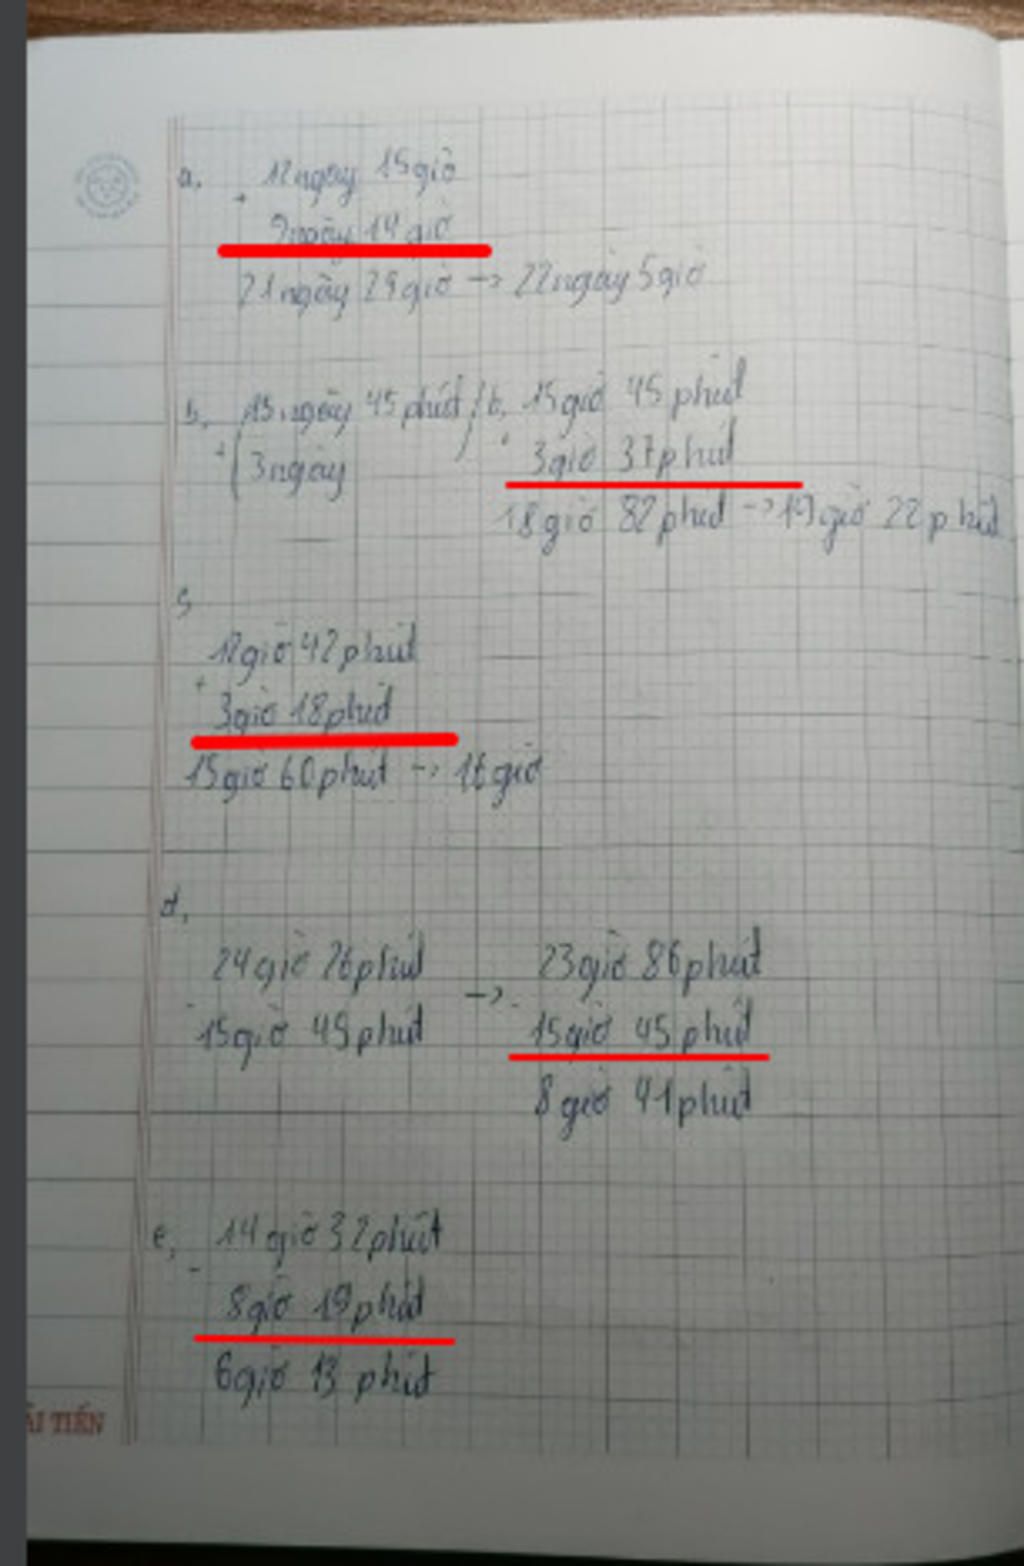 a, 12ngày 15giờ
+
9ngày 14 giờ
21ngày 29giờ -> 22ngày 5giờ
b, 15 ngày 45 phút
+ 3ngày
b, 15giờ 45 phút
+
3giờ 37phút
18giờ 82phút -> 19giờ 22phút
c,
12giờ 42phút
+
3giờ 18phút
15giờ 60phút -> 16giờ
d,
24giờ 26phút
-
15giờ 45phút
->
23giờ 86phút
-
15giờ 45 phút
8 giờ 41phút
e, 14 giờ 32phút
-
8giờ 19phút
6giờ 13 phút
ẢI TIẾN